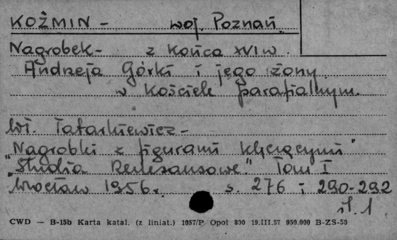 KOŹMIN - woj. Poznań.
Nagrobek - z końca XVI w.
Andrzeja Górki i jego żony
w Kościele parafialnym.
Wł. Tatarkiewicz -
"Nagrobki z figurami klęczącymi"
"Studia Renesansowe" Tom I
Wrocław 1956 r. s. 276 i 290-292
il. 1
CWD — B-15b Karta katal. (z liniat.) 1857/P. Opol 830 19.III.57 950.000 B-ZS-53